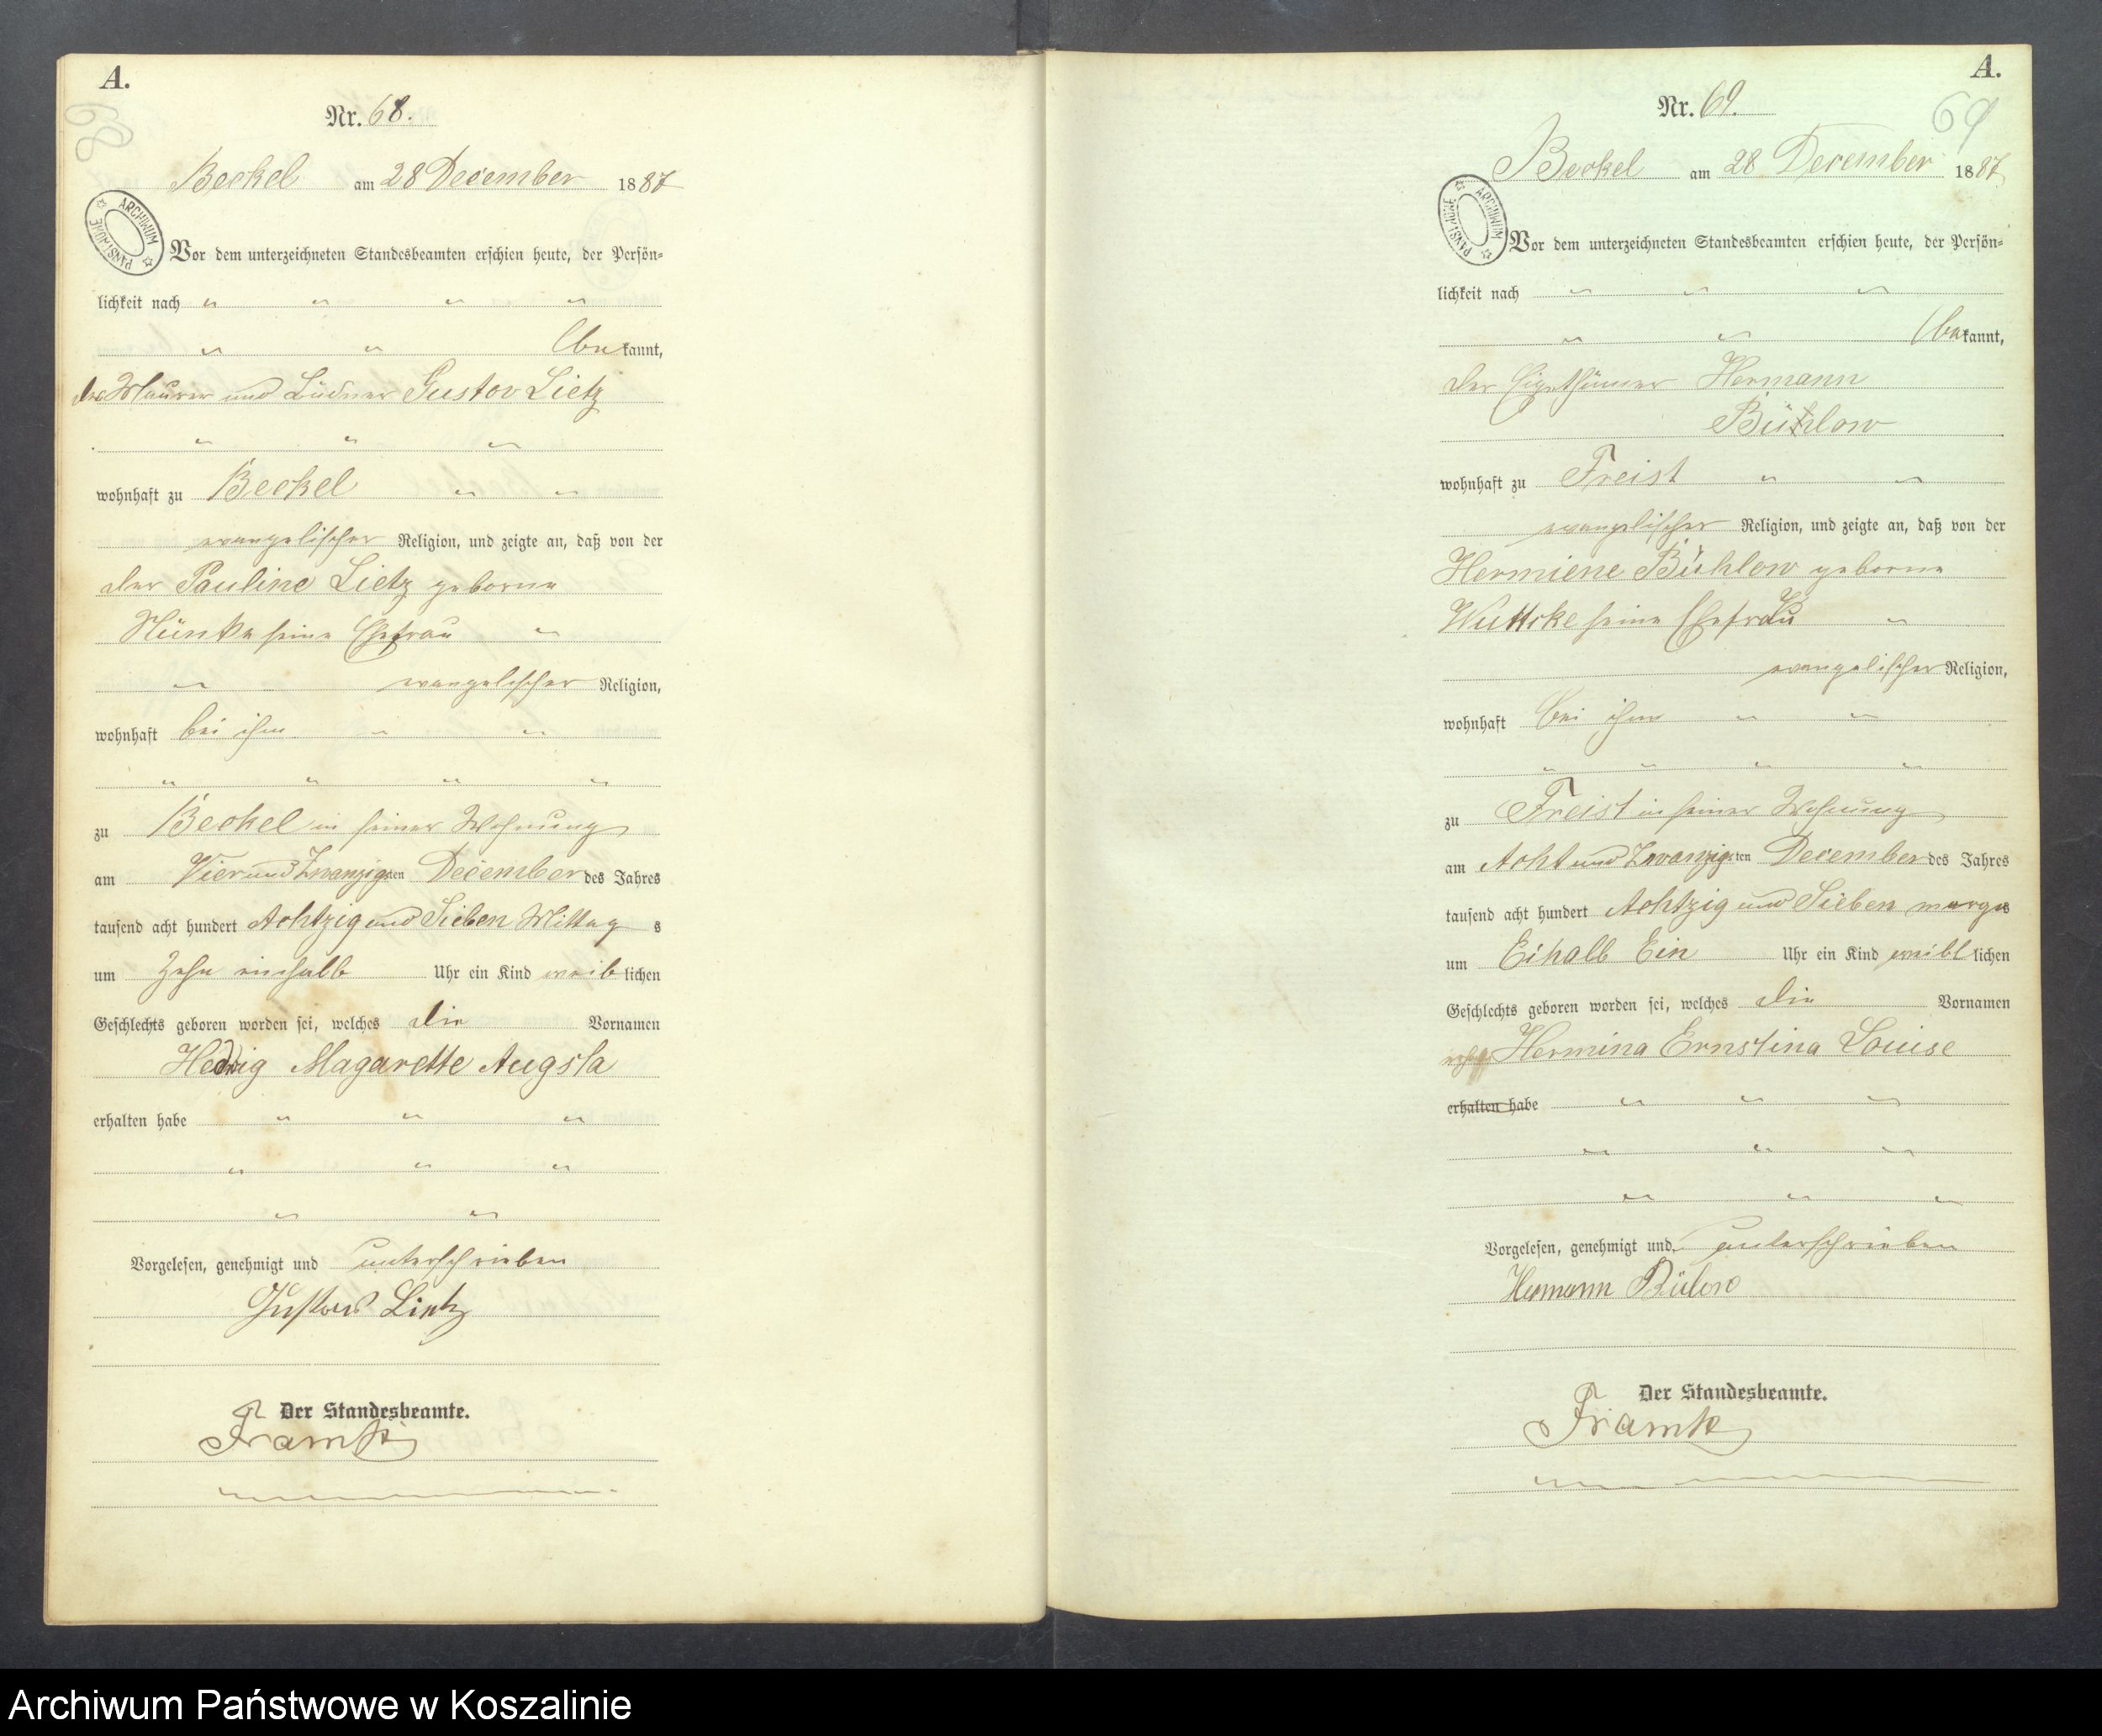 A.
68
Nr. 68.
Beckel am 28 December 1887
ARCHIWUM PAŃSTWOWE
Vor dem unterzeichneten Standesbeamten erschien heute, der Persön-
lichkeit nach " " " "
" " bekannt,
der Maurer und Büdner Gustav Lietz
" " "
wohnhaft zu Beckel " "
evangelischer Religion, und zeigte an, daß von der
der Pauline Lietz geborne
seine Ehefrau "
" evangelischer Religion,
wohnhaft bei ihm " "
" " " "
zu Beckel in seiner Wohnung
am Vier und Zwanzigsten December des Jahres
tausend acht hundert Achtzig und Sieben Mittag s
um Zehn einhalb Uhr ein Kind weiblichen
Geschlechts geboren worden sei, welches die Vornamen
Hedwig Magarette Augsta
erhalten habe " " "
" " "
" "
Vorgelesen, genehmigt und unterschrieben
Gustav Lietz
Der Standesbeamte.
Framke
A.
69
Nr. 69.
Beckel am 28 December 1887
ARCHIWUM PAŃSTWOWE
Vor dem unterzeichneten Standesbeamten erschien heute, der Persön-
lichkeit nach " " "
" " bekannt,
der Eigenthümer Hermann
Bühlow
wohnhaft zu Freist " "
evangelischer Religion, und zeigte an, daß von der
Hermiene Bühlow geborne
Wuttcke seine Ehefrau "
evangelischer Religion,
wohnhaft bei ihm " "
" " " "
zu Freist in seiner Wohnung
am Acht und Zwanzigsten December des Jahres
tausend acht hundert Achtzig und Sieben morgns
um Eihalb Ein Uhr ein Kind weibllichen
Geschlechts geboren worden sei, welches die Vornamen
Hermina Ernstina Louise
erhalten habe " " "
" " "
" " "
Vorgelesen, genehmigt und unterschrieben
Hermann Bülow
Der Standesbeamte.
Framke
Archiwum Państwowe w Koszalinie